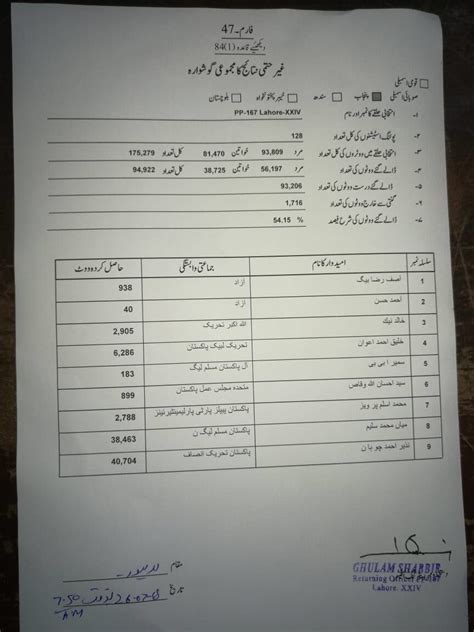 فارم۔47
دیکھیئے قاعدہ 84(1)
غیر حتمی نتائج کا مجموعی گوشوارہ
قومی اسمبلی
صوبائی اسمبلی پنجاب سندھ خیبر پختونخواہ بلوچستان
۱- انتخابی حلقے کا نمبر اور نام PP-167 Lahore-XXIV
۲- پولنگ اسٹیشنوں کی کل تعداد 128
۳- انتخابی حلقے میں ووٹروں کی کل تعداد مرد 93,809 خواتین 81,470 کل تعداد 175,279
۴- ڈالے گئے ووٹوں کی تعداد مرد 56,197 خواتین 38,725 کل تعداد 94,922
۵- ڈالے گئے درست ووٹوں کی تعداد 93,206
۶- گنتی سے خارج ووٹوں کی تعداد 1,716
۷- ڈالے گئے ووٹوں کی شرح فیصد 54.15 %
سلسلہ نمبر امیدوار کا نام جماعتی وابستگی حاصل کردہ ووٹ
1 آصف رضا بیگ آزاد 938
2 احمد حسن آزاد 40
3 خالد نیک اللہ اکبر تحریک 2,905
4 خلیق احمد اعوان تحریک لبیک پاکستان 6,286
5 سمیر ا بی بی آل پاکستان مسلم لیگ 183
6 سید احسان اللہ وقاص متحدہ مجلس عمل پاکستان 899
7 محمد اسلم پرویز پاکستان پیپلز پارٹی پارلیمینٹیرینز 2,788
8 میاں محمد سلیم پاکستان مسلم لیگ ن 38,463
9 نذیر احمد چوہان پاکستان تحریک انصاف 40,704
GHULAM SHABBIR
Returning Officer PP-167
Lahore-XXIV
مقام لاہور
تاریخ
7:50
AM